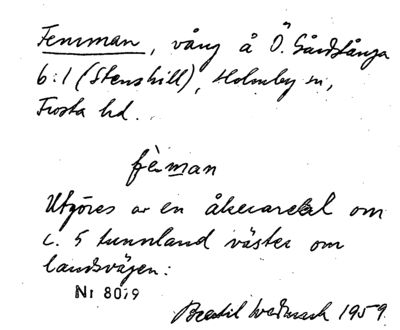 Femman, vång å Ö. Gårdstånga
6:1 (Stenshill), Holmby sn,
Frosta hd.
fèman
Utgöres av en åkerareal om
c. 5 tunnland väster om
landsvägen:
Nr 8079
Bertil Wedmark 1959